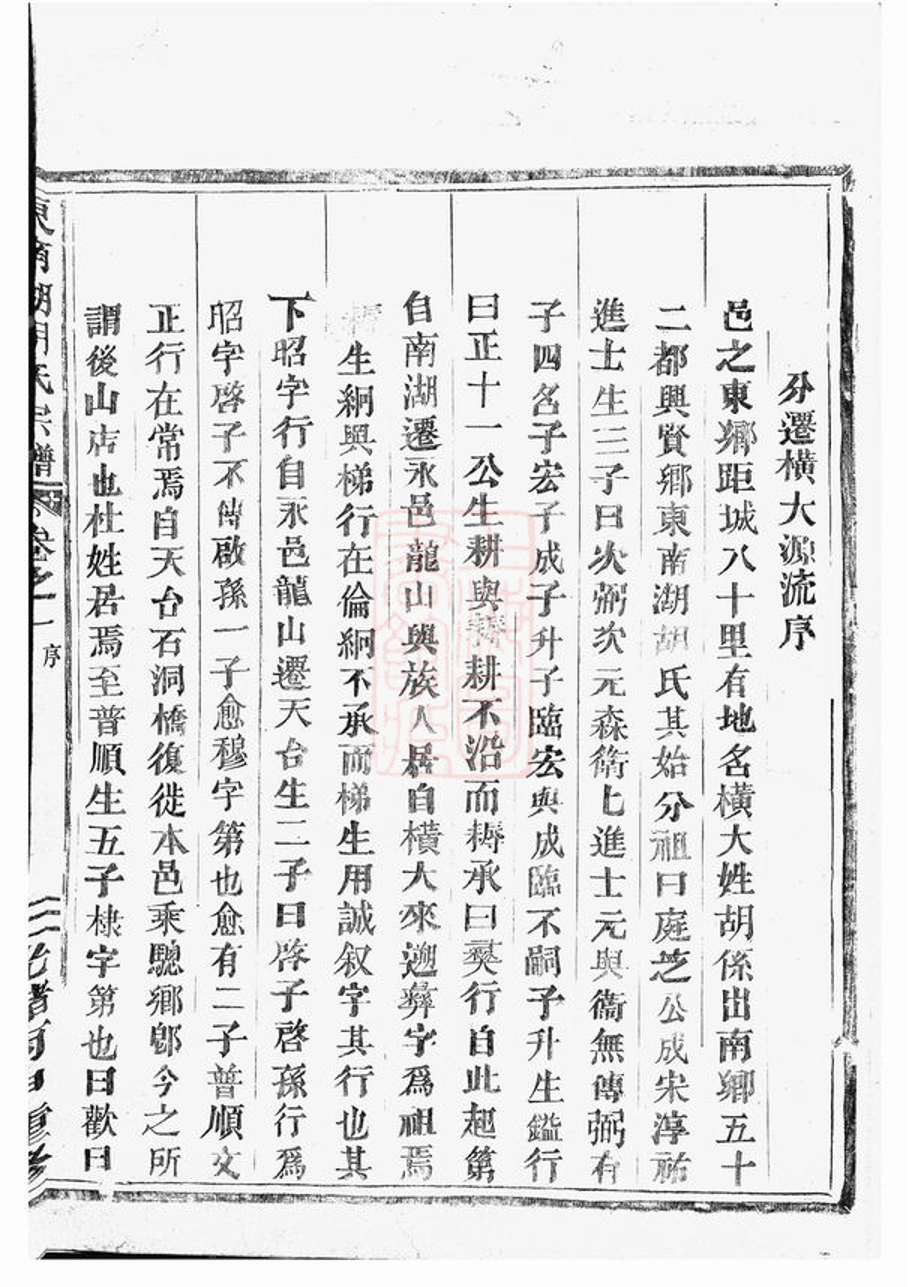 分遷橫大源流序
邑之東鄉距城八十里有地名橫大姓胡係出南鄉五十
二都興賢鄉東南湖胡氏其始分祖曰庭芝公成宋淳祐
進士生三子曰次弼次元森衛七進士元與衞無傳弼有
子四名子宏子成子升子臨宏與成臨不嗣子升生鎰行
曰正十一公生耕與耨耕不沿而耨承曰奭行自此起第
自南湖遷永邑龍山與族人居自橫大來遡彝字爲祖焉
耨生絅與梯行在倫絅不承而梯生用誠叙字其行也其
下昭字行自永邑龍山遷天台生二子曰啓子啓孫行爲
昭字啓子不傳啟孫一子愈穆字第也愈有二子普順文
正行在常焉自天台石洞橋復徙本邑乘驄鄉郎今之所
謂後山店也杜姓居焉至普順生五子棣字第也曰歡曰
東南湖胡氏宗譜 卷之一 序